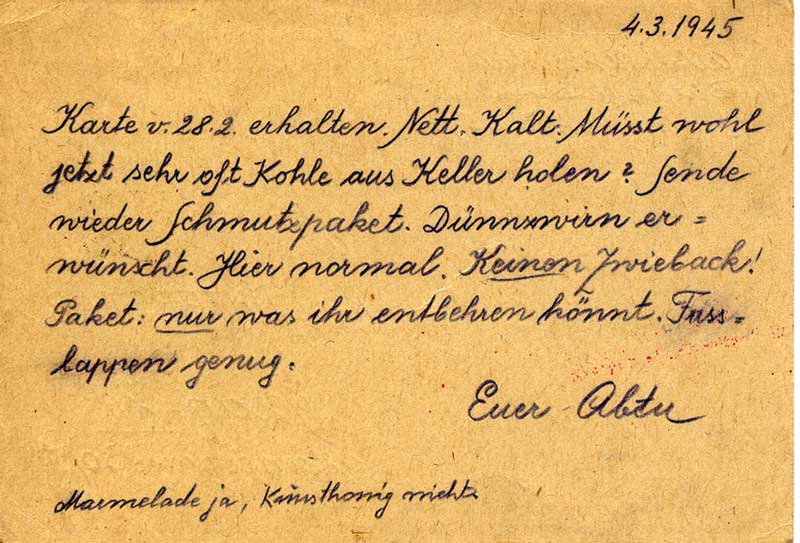 4.3.1945
Karte v. 28.2. erhalten. Nett. Kalt. Müsst wohl
jetzt sehr oft Kohle aus Keller holen? Sende
wieder Schmutzpaket. Dünnzwirn er=
wünscht. Hier normal. Keinen Zwieback!
Paket: nur was ihr entbehren könnt. Fuss=
lappen genug.
Euer
Marmelade ja, Kunsthonig nicht.